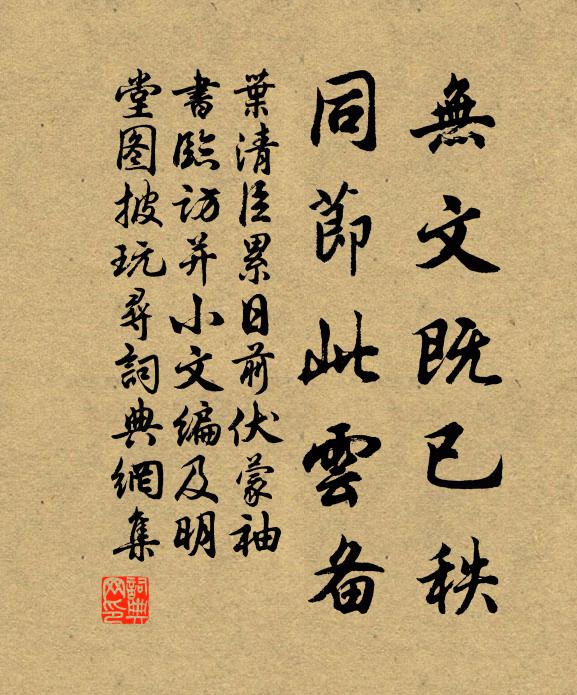 無文既已秩
同節此雲备
葉清臣累日前伏蒙袖
書臨訪并小文编及明
堂图披玩尋詞典網集
詞典
网印